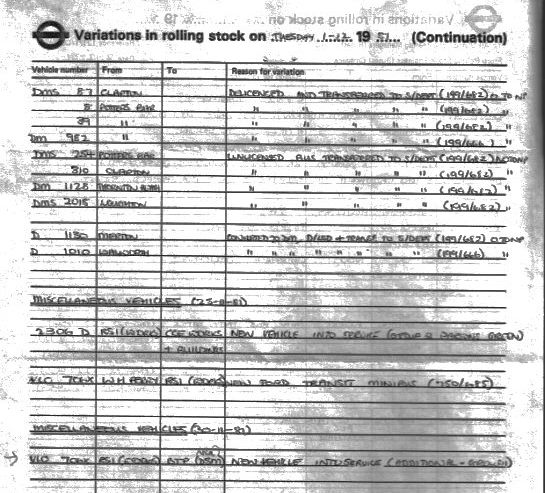 Variations in rolling stock on TUESDAY 1-12 19 81 (Continuation)
Vehicle number From To Reason for variation
Dms 87 CLAPTON DELICENSED AND TRANSFERRED TO S/DEPT (199/682)
8 POTTERS BAR " " " " " (199/682) "
89 " " " " " " (199/682) "
Dm 952 " " " " " " (199/666) "
Dms 254 POTTERS BAR UNLICENSED BUS TRANSFERRED TO S/DEPT (199/682)
810 CLAPTON " " " " " (199/682) "
Dm 1128 THORNTON HEATH " " " " " (199/682) "
Dms 2015 LOUGHTON " " " " " (199/682) "
D 1130 MERTON D/LED + TRANSF TO S/DEPT (199/682)
D 1010 WALWORTH " " " " " " " (199/666) "
MISCELLANEOUS VEHICLES (25-11-81)
2306 D RSI CCE WORKS NEW VEHICLE INTO SERVICE
+ BUILDINGS
VLO 70WX RSI NEW FORD TRANSIT MINIBUS (250/685)
MISCELLANEOUS VEHICLES (30-11-81)
VLO 70WX RSI NEW VEHICLE INTO SERVICE (ADDITIONAL -